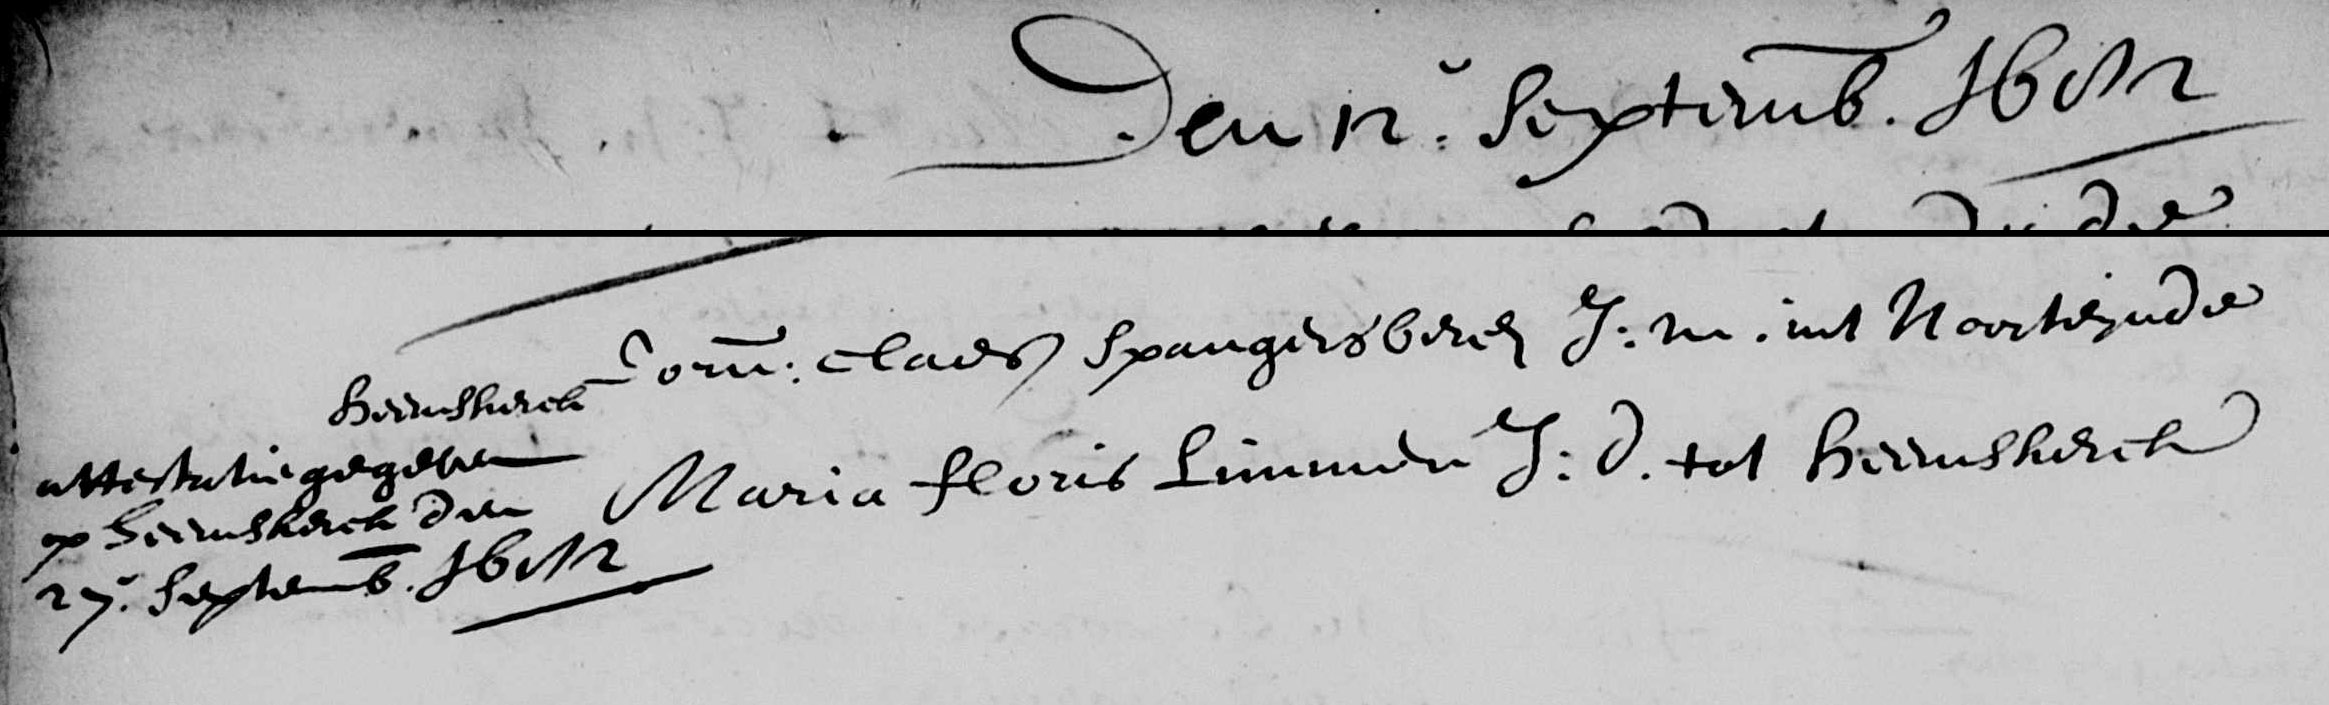 Den 12. Septemb. 1682
Corn: Claes Spangersberch J: m. int Noorteynde
Heemskerck
Maria floris Limmen J: d. tot Heemskerck
attestatie gegeven
op Heemskerck den
27. Septemb. 1682